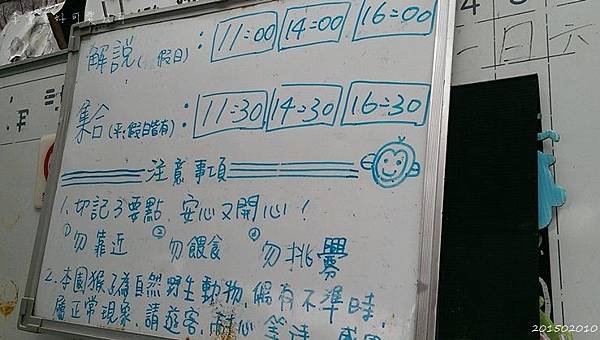 解說(假日):11:00 14:00 16:00
集合(平.假日皆有):11:30 14:30 16:30
注意事項
1.切記3要點,安心又開心!
①勿靠近 ②勿餵食 ③勿挑釁
2.本園猴子為自然野生動物,偶有不準時,
屬正常現象,請遊客,耐心等待,感
日 六
201502010